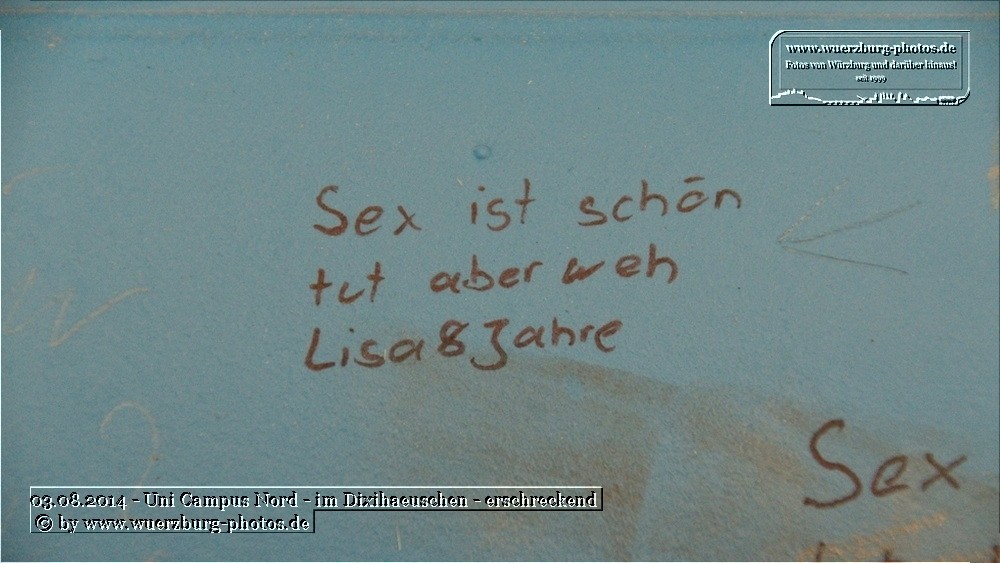 www.wuerzburg-photos.de
Fotos von Würzburg und darüber hinaus!
seit 1999
Sex ist schön
tut aber weh
Lisa 8 Jahre
Sex
03.08.2014 - Uni Campus Nord - im Dixihaeuschen - erschreckend
© by www.wuerzburg-photos.de